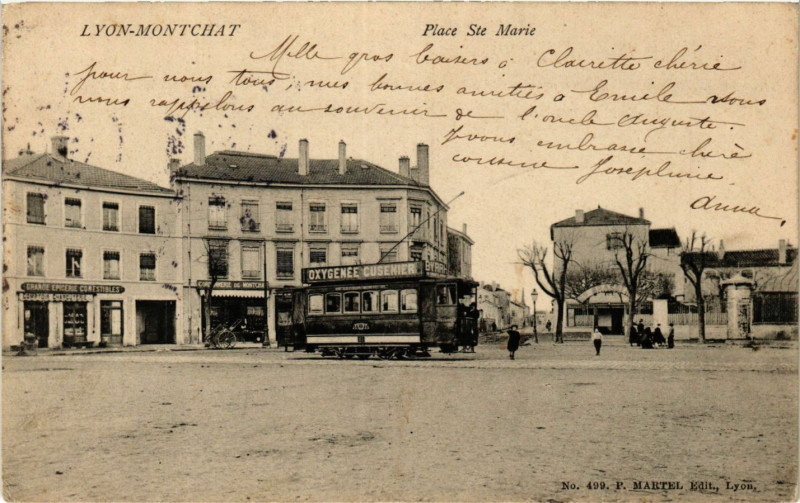 LYON-MONTCHAT
Place Ste Marie
Mille gros baisers à Clairette chérie
pour nous tous, mes bonnes amitiés à Emile nous
nous rappelons au souvenir de l'oncle Auguste.
Je vous embrasse chère
cousine Joséphine
Anna
GRANDE EPICERIE COMESTIBLES
DE MONTCHAT
OXYGENÉE CUSENIER
No. 499. P. MARTEL Edit., Lyon.